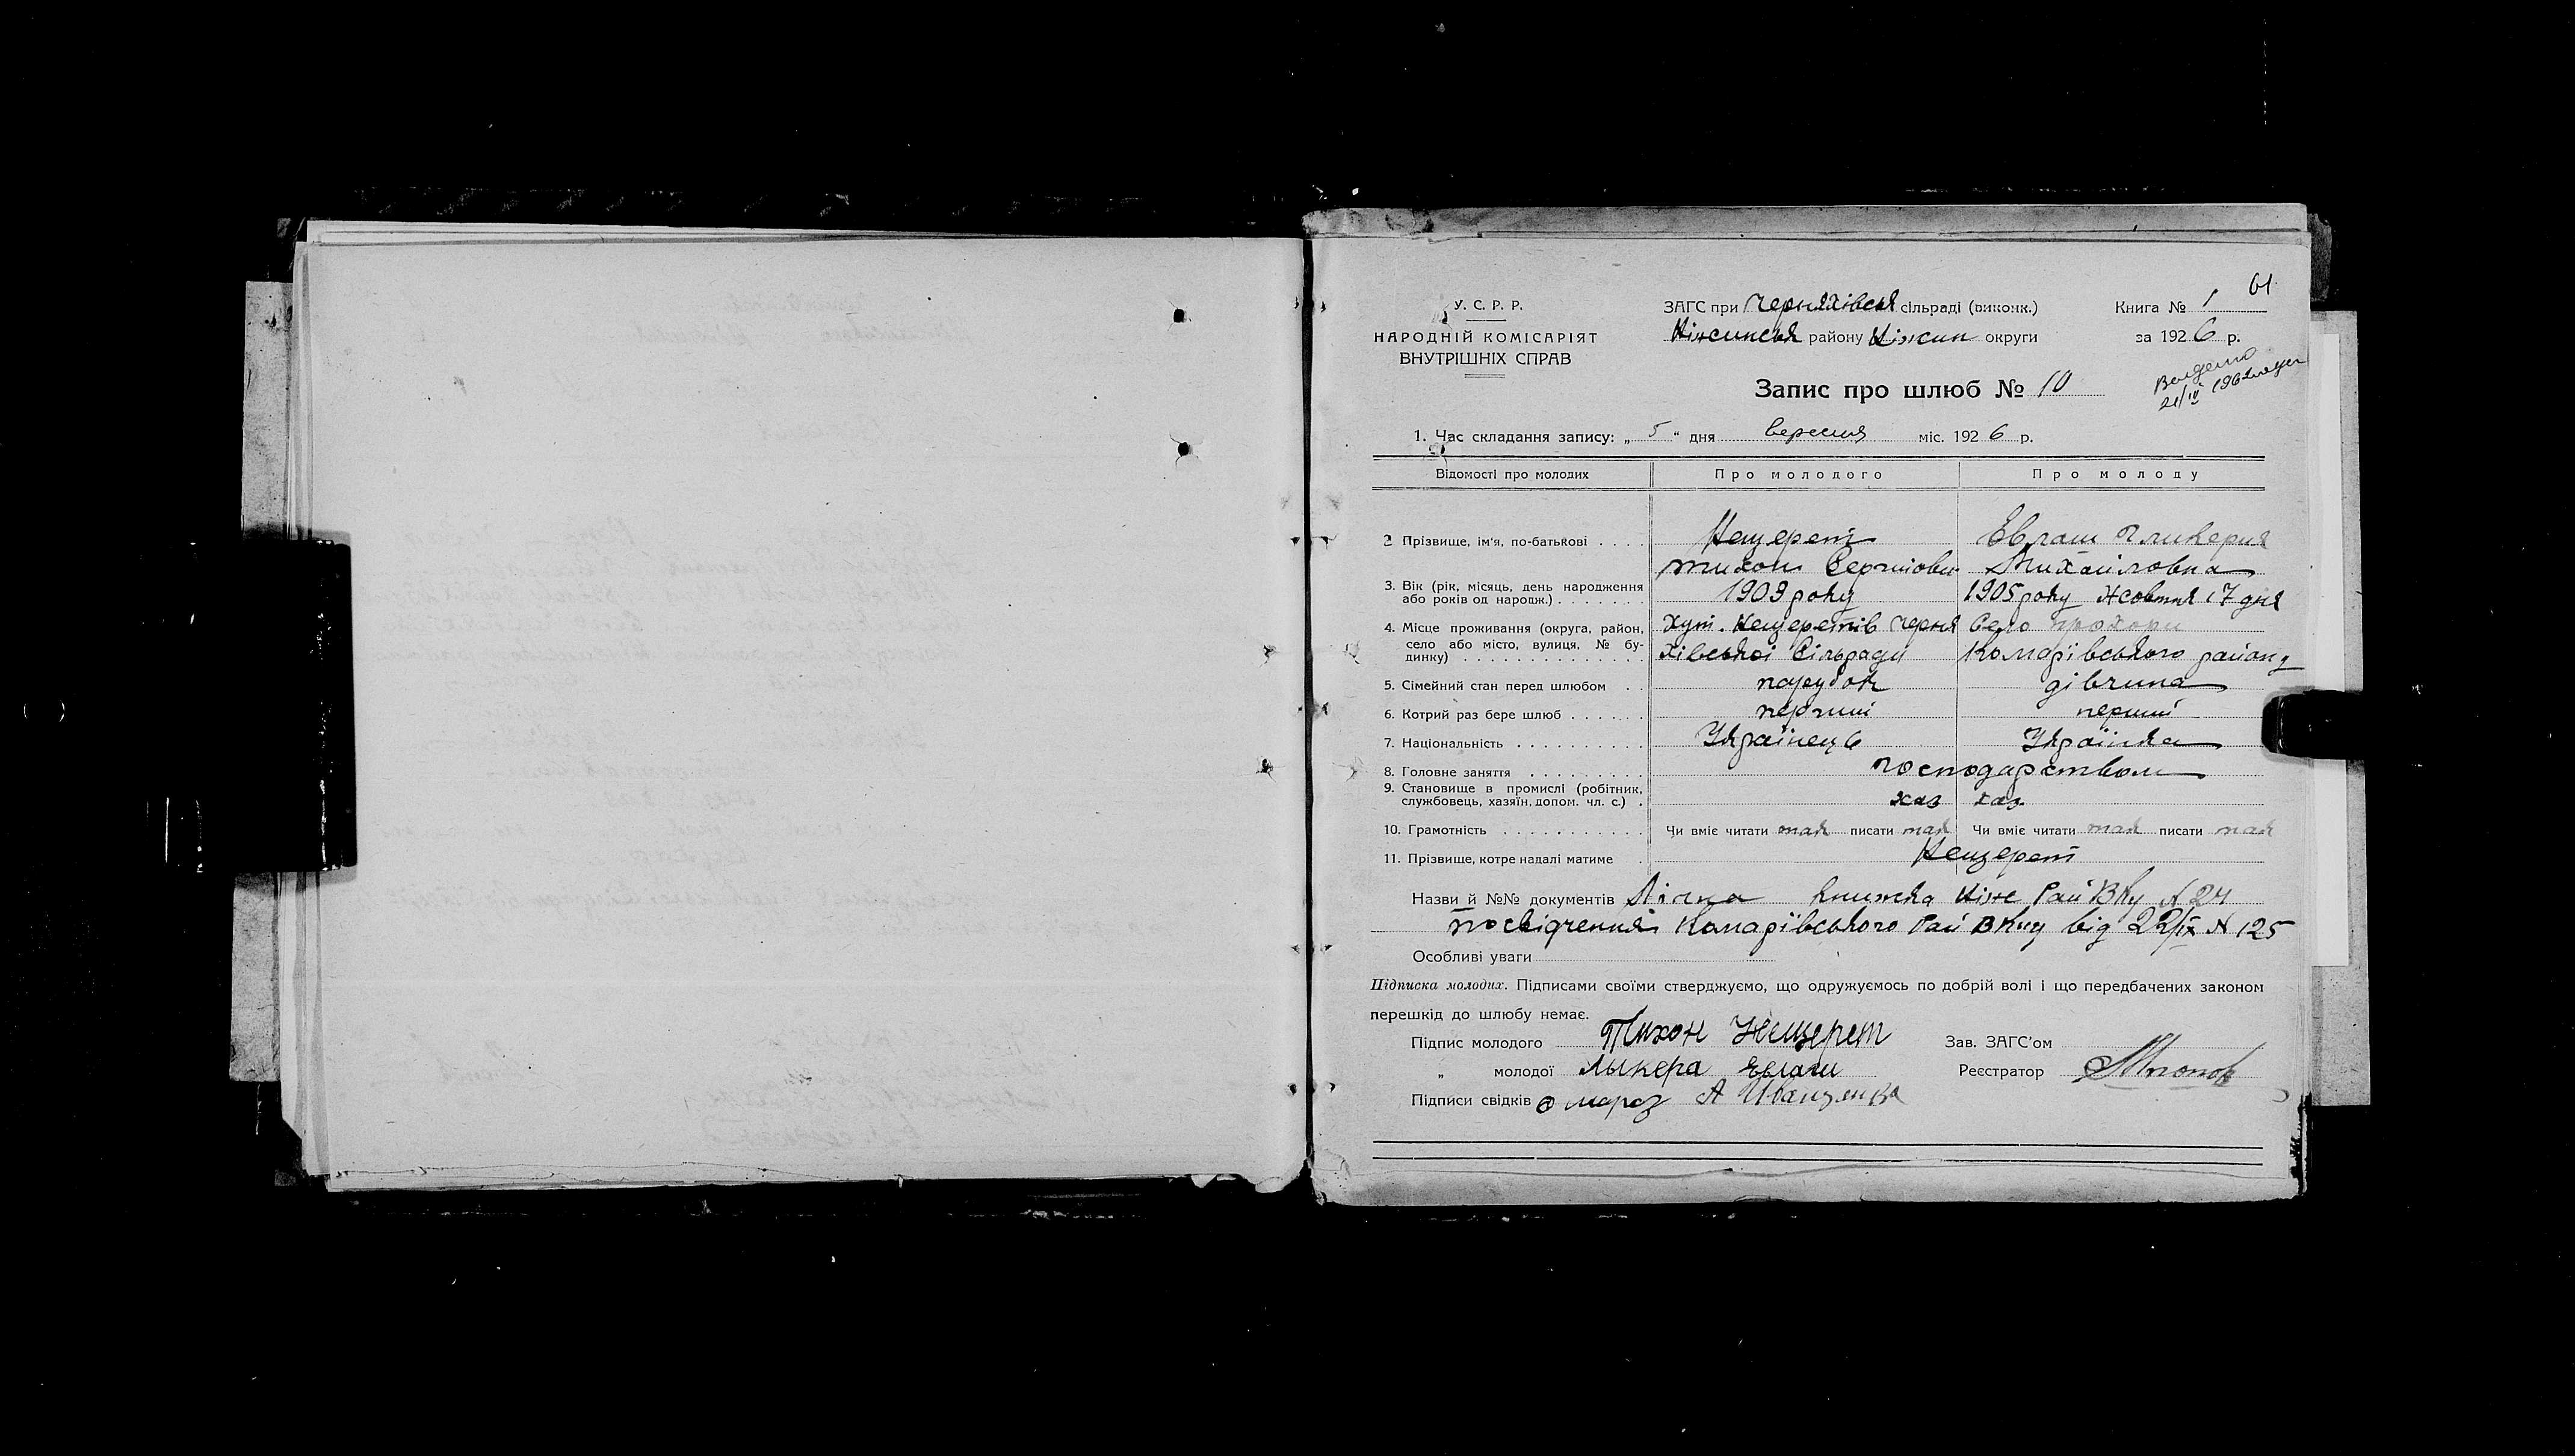 61
У. С. Р. Р.
НАРОДНІЙ КОМІСАРІЯТ
ВНУТРІШНІХ СПРАВ
ЗАГС при Черняхівськ сільраді (виконк.)
Ніжинськ району Ніжин округи
Книга № 1
за 1926 р.
Запис про шлюб № 10
1. Час складання запису: „ 5 “ дня вересня міс. 1926 р.
Відомості про молодих Про молодого Про молоду
2 Прізвище, ім'я, по-батькові . . . . Нещерет Евлаш Гликерия
Тихон Сергійович Михайловна
3. Вік (рік, місяць, день народження або років од народж.) . . . . . . . 1903 року 1905 року Жовтня 17 дня
4. Місце проживання (округа, район, село або місто, вулиця, № будинку) . . . . . . . . . . . . . . Хут. Нещеретів Черня Село Прохори
хівської Сільради Комарівського району
5. Сімейний стан перед шлюбом . . парубок дівчина
6. Котрий раз бере шлюб . . . . . . перший перший
7. Національність . . . . . . . . . . Українець Українка
8. Головне заняття . . . . . . . . . господарством
9. Становище в промислі (робітник, службовець, хазяїн, допом. чл. с.) . хаз хаз
10. Грамотність . . . . . . . . . . . Чи вміє читати так писати так Чи вміє читати так писати так
11. Прізвище, котре надалі матиме . Нещерет
Назви й №№ документів Лічна книжка Ніж РайВКу № 24
посвідчення Комарівського Рай ВКу від 22/IX № 125
Особливі уваги
Підписка молодих. Підписами своїми стверджуємо, що одружуємось по добрій волі і що передбачених законом
перешкід до шлюбу немає.
Підпис молодого Тихон Нещерет Зав. ЗАГС'ом
„ молодої Лыкера Евлаш Реєстратор
Підписи свідків мороз А Иванченко